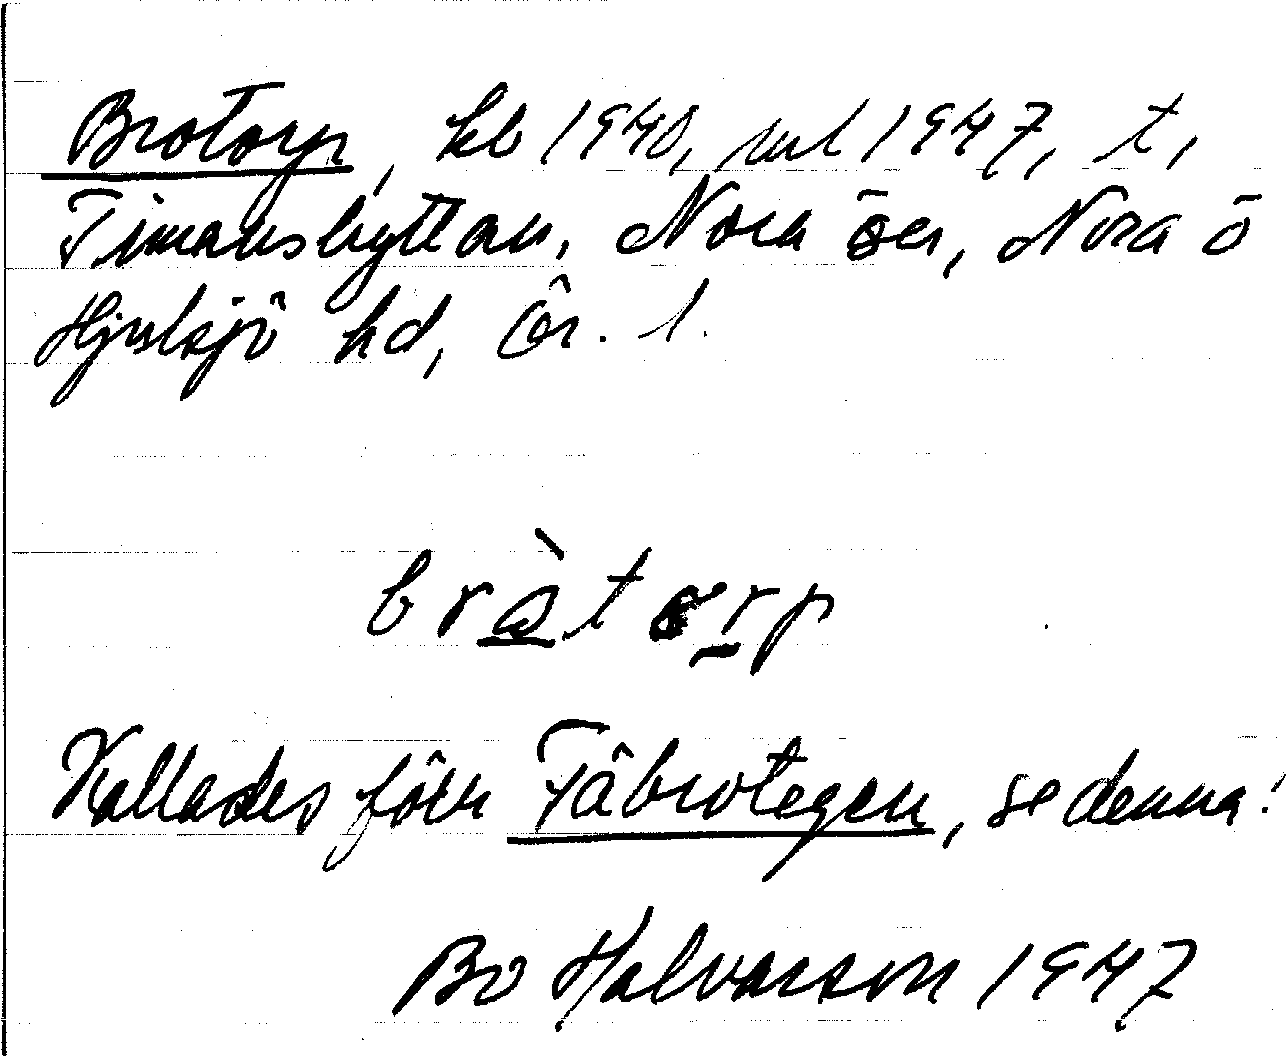 Brotorp, kb 1940, ml 1947, t,
Timanshyttan, Nora ö sn, Nora o
Hjulsjö hd, Ör. l.
bròtorp
Kallades förr Fäbrotegen, se denna!
Bo Halvarson 1947